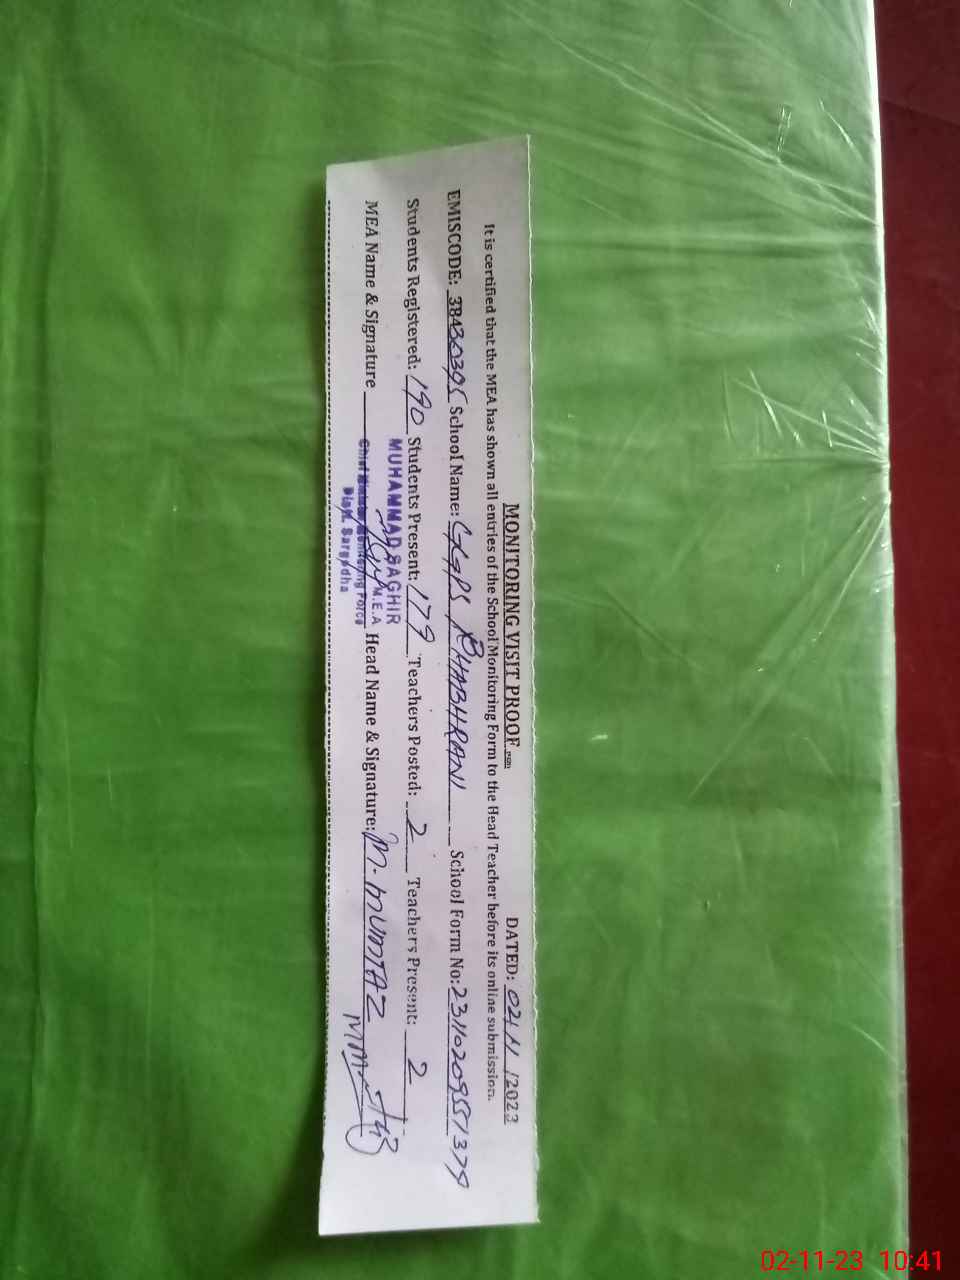 MONITORING VISIT PROOF (PSM) DATED: 02/11/2023
It is certified that the MEA has shown all entries of the School Monitoring Form to the Head Teacher before its online submission.
EMISCODE: 38430395 School Name: GGPS BHABHRANI School Form No: 23110209551379
Students Registered: 190 Students Present: 179 Teachers Posted: 2 Teachers Present: 2
MEA Name & Signature Head Name & Signature: M. MUMTAZ
MUHAMMAD SAGHIR
M.E.A
Chief Minister Monitoring Force
Distt. Sargodha
02-11-23 10:41